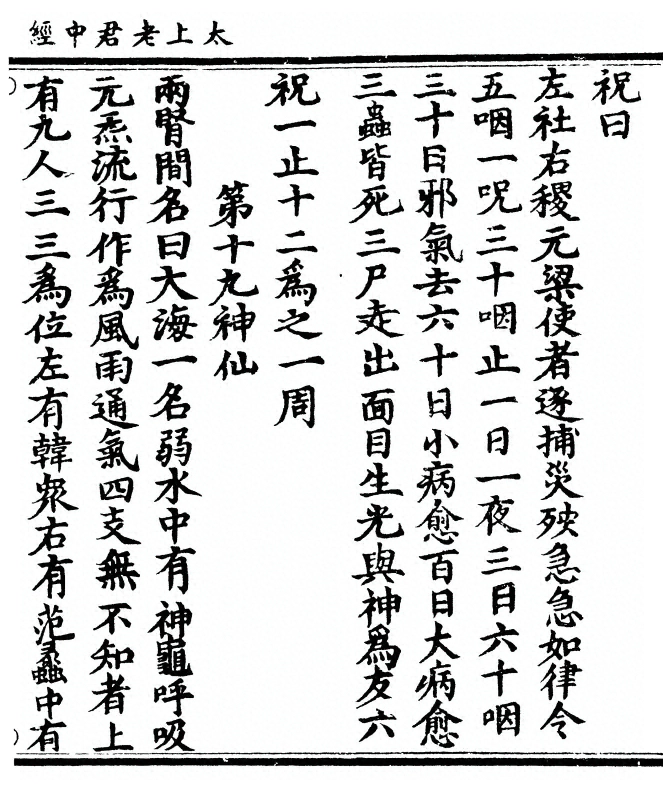 太上老君中經
祝曰
左社右稷元梁使者逐捕災殃急急如律令
五咽一呪三十咽止一日一夜三日六十咽
三十日邪氣去六十日小病愈百日大病愈
三蟲皆死三尸走出面目生光與神為友六
祝一止十二爲之一周
第十九神仙
兩腎間名曰大海一名弱水中有神龜呼吸
元炁流行作爲風雨通氣四支無不知者上
有九人三三爲位左有韓衆右有范蠡中有